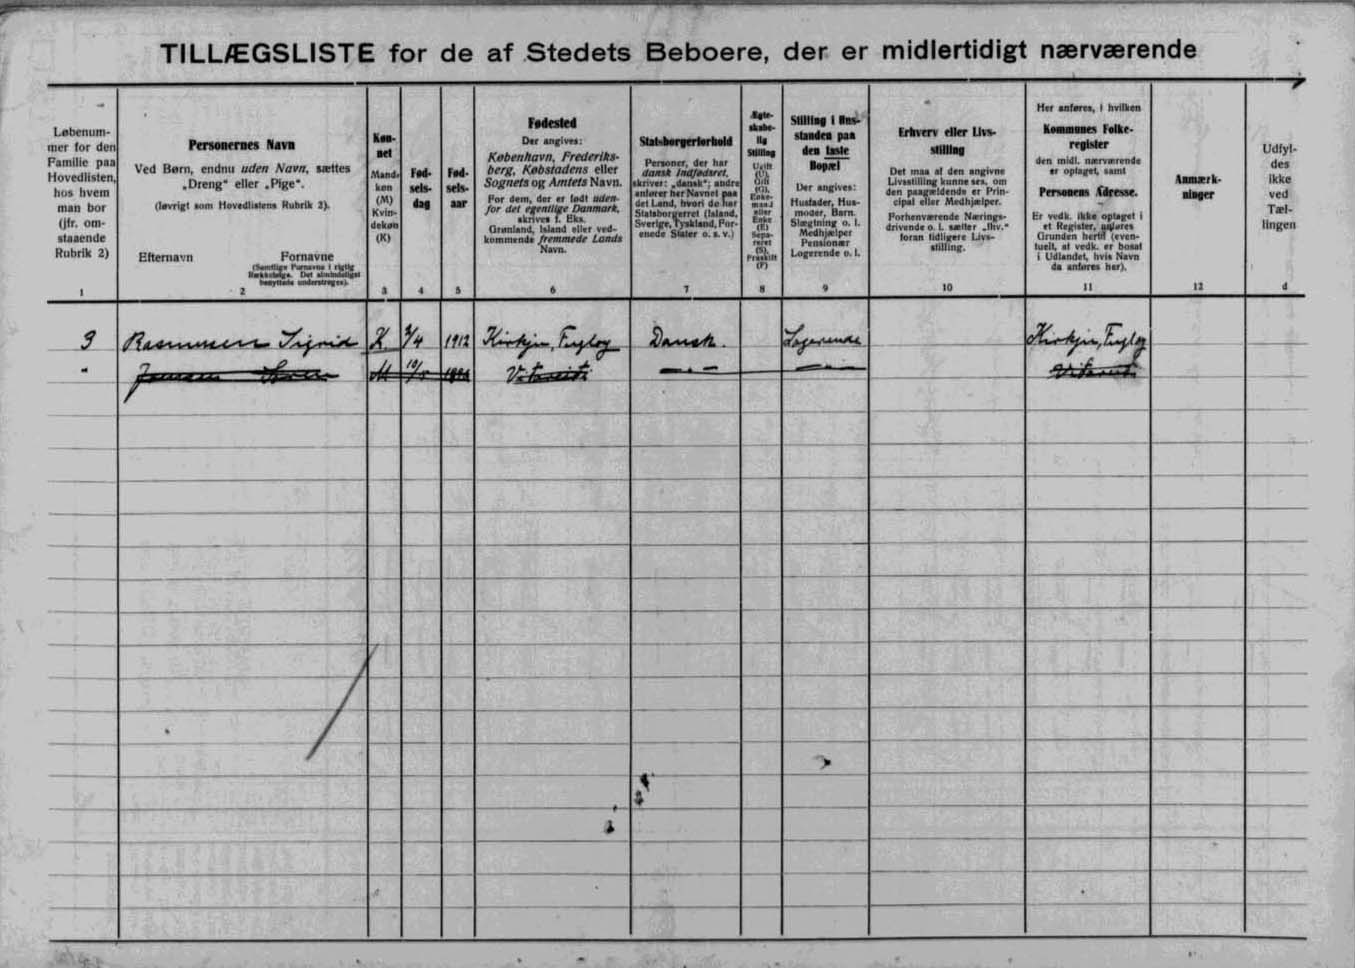 TILLÆGSLISTE for de af Stedets Beboere, der er midlertidigt nærværende
Løbenum-
mer for den
Familie paa
Hovedlisten,
hos hvem
man bor
(jfr. om-
staaende
Rubrik 2)
1
Personernes Navn
Ved Børn, endnu uden Navn, sættes
„Dreng“ eller „Pige“.
(Iøvrigt som Hovedlistens Rubrik 2).
Efternavn Fornavne
(Samtlige Fornavne i rigtig
Rækkefølge. Det almindeligst
benyttede understreges).
2
Køn-
net
Mand-
køn
(M)
Kvin-
dekøn
(K)
3
Fød-
sels-
dag
4
Fød-
sels-
aar
5
Fødested
Der angives:
København, Frederiks-
berg, Købstadens eller
Sognets og Amtets Navn.
For dem, der er født uden-
for det egentlige Danmark,
skrives f. Eks.
Grønland, Island eller ved-
kommende fremmede Lands
Navn.
6
Statsborgerforhold
Personer, der har
dansk Indfødsret,
skriver: „dansk“; andre
anfører her Navnet paa
det Land, hvori de har
Statsborgerret (Island,
Sverige, Tyskland, For-
enede Stater o. s. v.)
7
Ægte-
skabe-
lig
Stilling
Ugift
(U),
Gift
(G),
Enke-
mand
eller
Enke
(E)
Sepa-
reret
(S),
Fraskilt
(F)
8
Stilling i Hus-
standen paa
den faste
Bopæl
Der angives:
Husfader, Hus-
moder, Barn,
Slægtning o. l.
Medhjælper
Pensionær
Logerende o. l.
9
Erhverv eller Livs-
stilling
Det maa af den angivne
Livsstilling kunne ses, om
den paagældende er Prin-
cipal eller Medhjælper.
Forhenværende Nærings-
drivende o. l. sætter „fhv.“
foran tidligere Livs-
stilling.
10
Her anføres, i hvilken
Kommunes Folke-
register
den midl. nærværende
er optaget, samt
Personens Adresse.
Er vedk. ikke optaget i
et Register, anføres
Grunden hertil (even-
tuelt, at vedk. er bosat
i Udlandet, hvis Navn
da anføres her).
11
Anmærk-
ninger
12
Udfyl-
des
ikke
ved
Tæl-
lingen
d
3 Rasmussen Sigrid K 3/4 1912 Kirkju, Fugloy Dansk. Logerende Kirkju, Fugloy
" M 10/5 — " — — " —